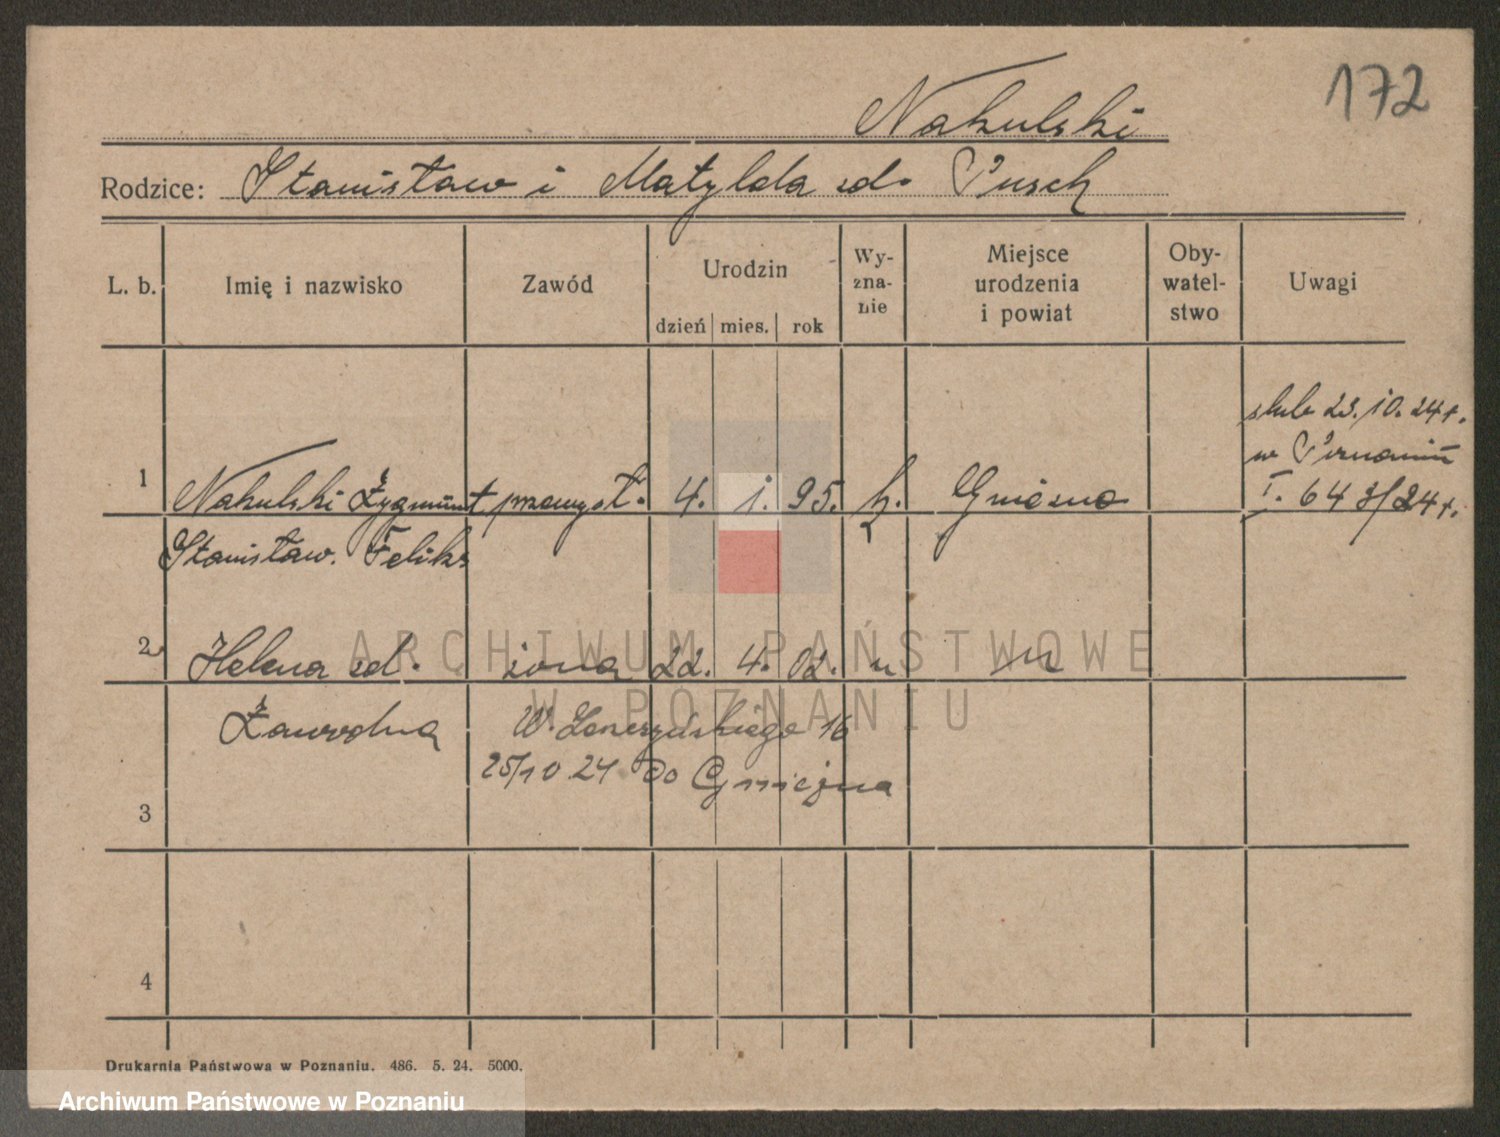 172
Nakulski
Rodzice: Stanisław i Matylda zd. Pusch
L. b.
Imię i nazwisko
Zawód
Urodzin
dzień mies. rok
Wy-
zna-
nie
Miejsce
urodzenia
i powiat
Oby-
watel-
stwo
Uwagi
ślub 23.10.24 r.
w Poznaniu
I. 643/24 r.
1 Nakulski Zygmunt przemysł. 4. 1. 95. k. Gniezno
Stanisław. Feliks
2 Helena zd. żona 22. 4. 02. "
Zawodna W. 16
25/10 24 do Gniezna
3
4
Drukarnia Państwowa w Poznaniu. 486. 5. 24. 5000.
ARCHIWUM PAŃSTWOWE
W POZNANIU
Archiwum Państwowe w Poznaniu